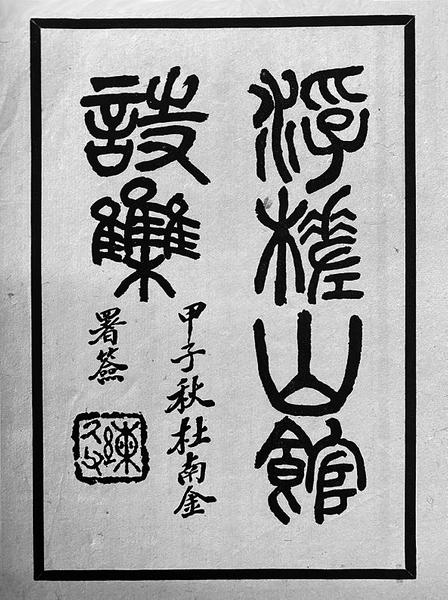 浮槎山館
詩集
甲子秋杜南金
署簽